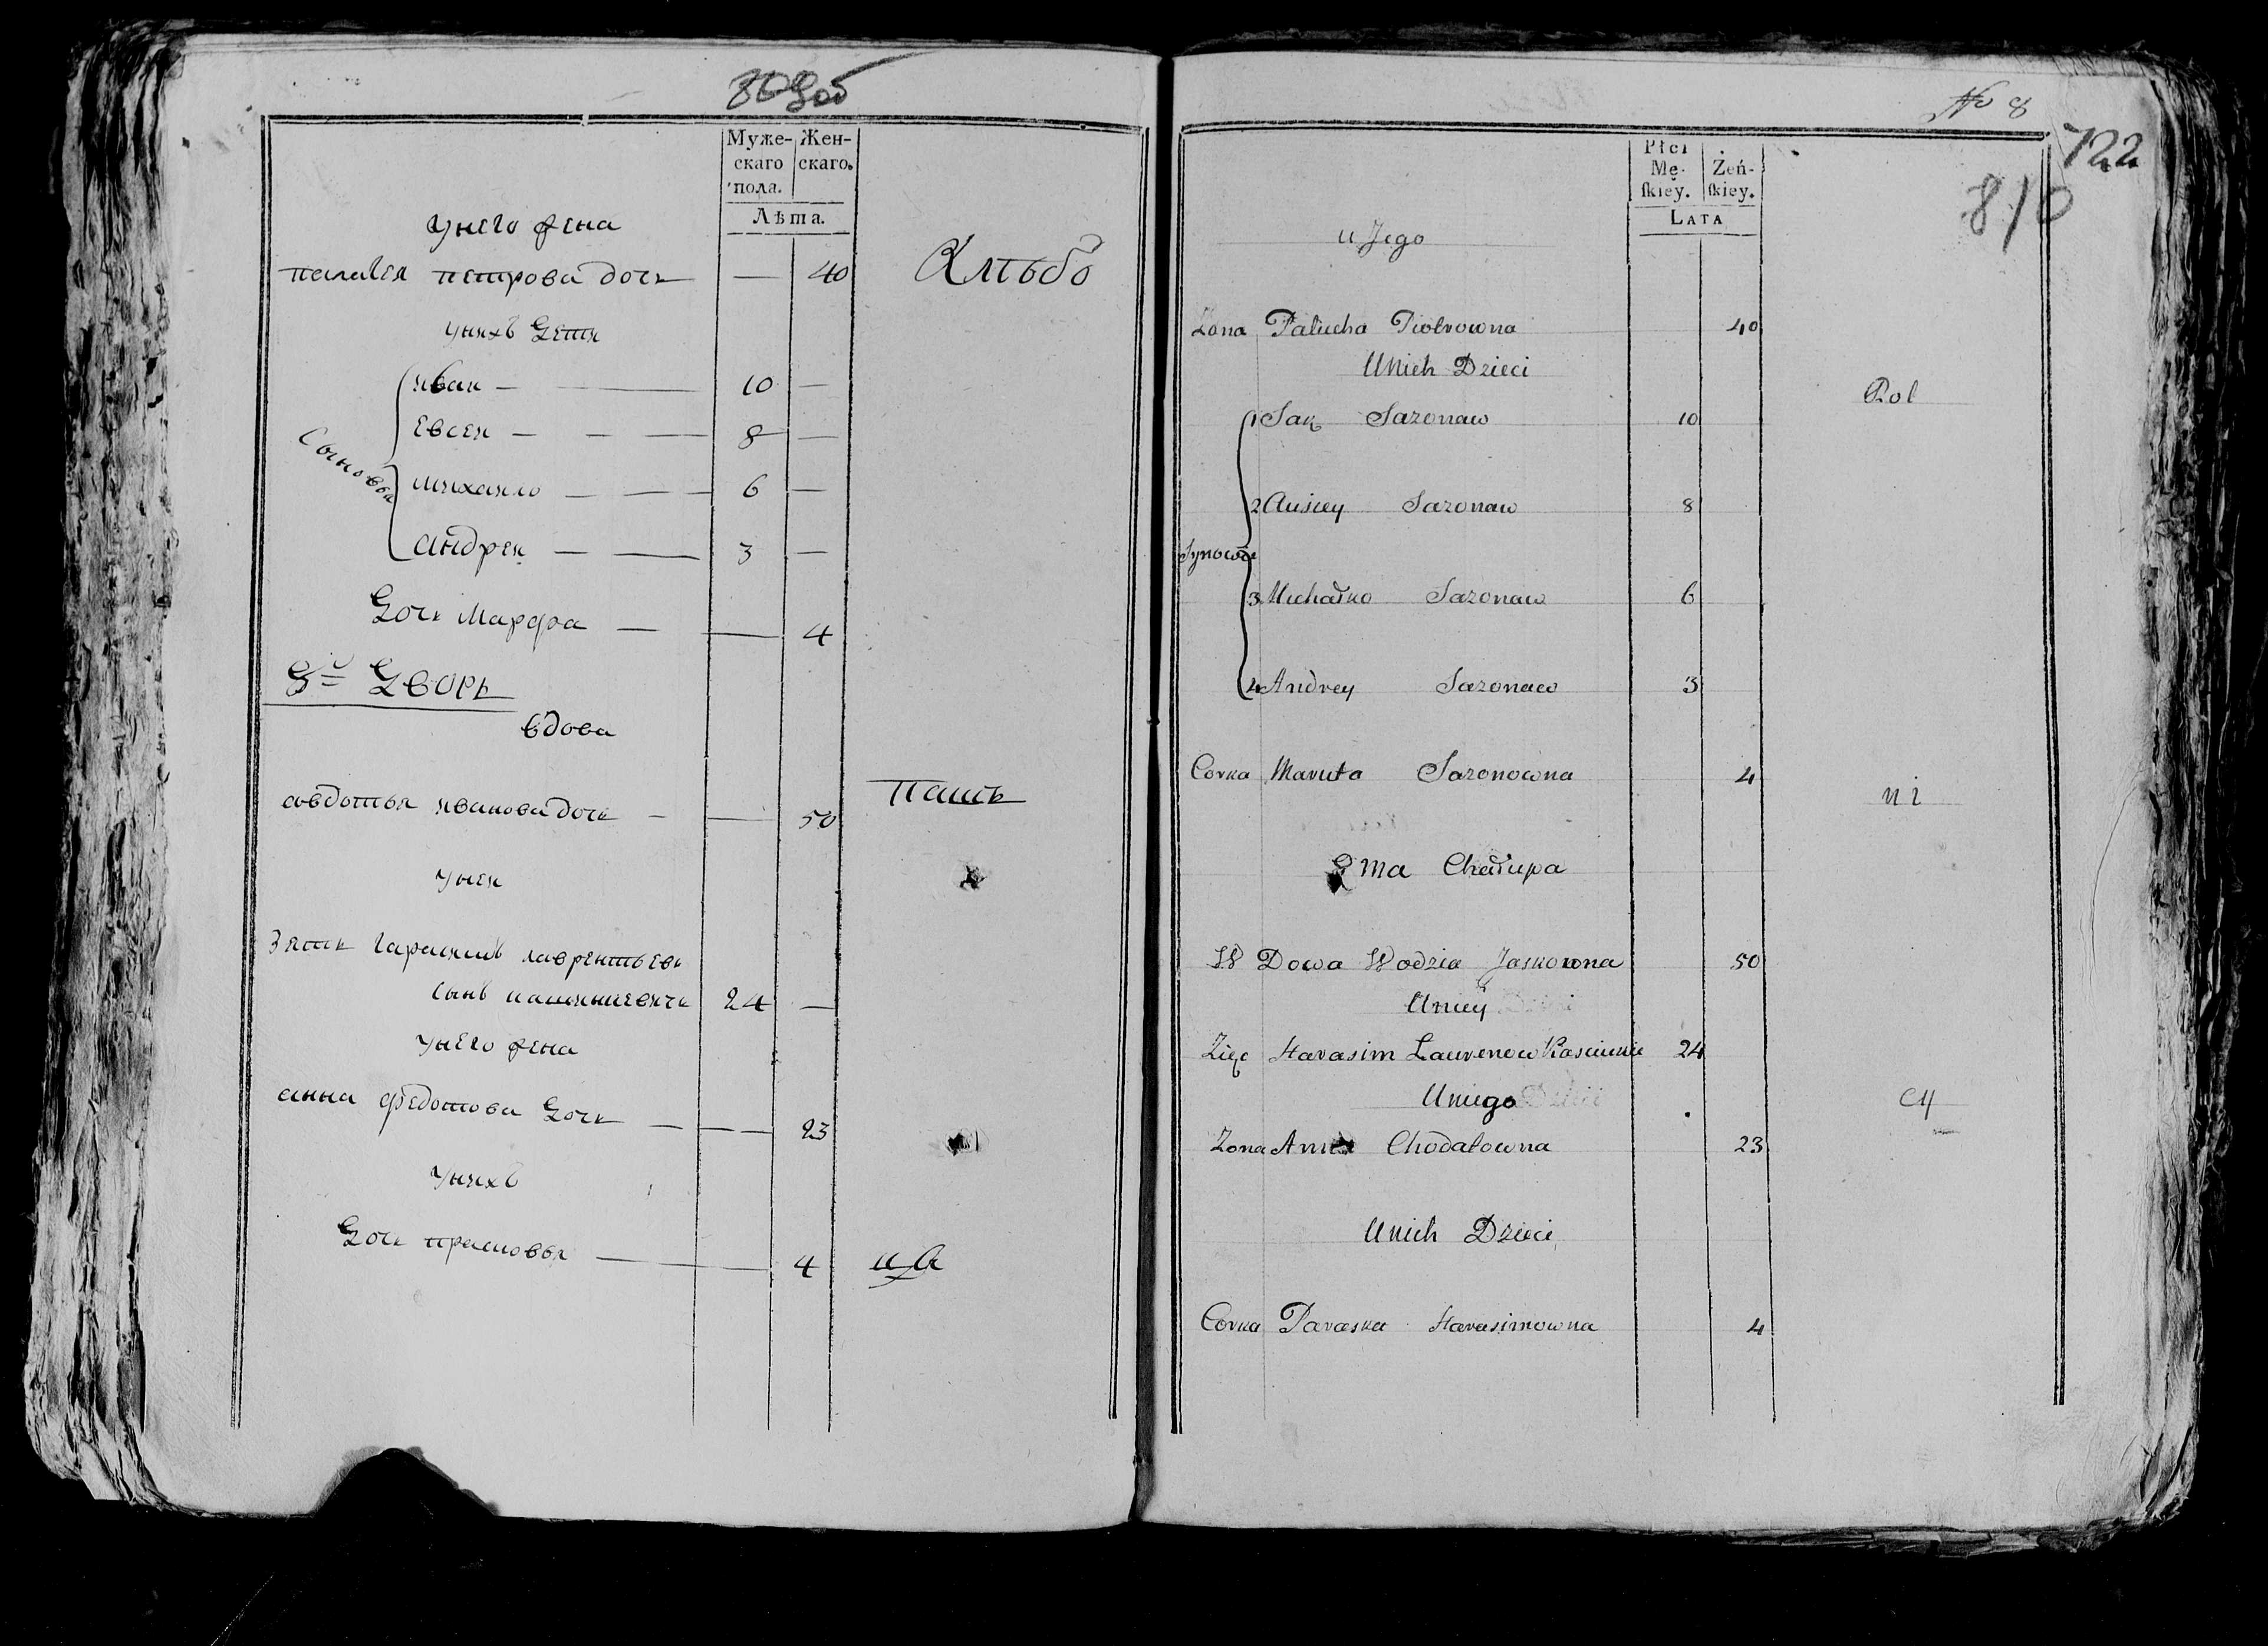 809об
Муже- Жен-
скаго скаго.
пола.
Лѣта.
унего жена
палагея петрова дочь — 40
Хлѣбо
унихъ дети
Сыновья
иван — 10 —
Евсей — 8 —
михайло — 6 —
андрей — 3 —
дочь Марфа — 4
8й дворъ
вдова
авдотья иванова дочь — 50
пашъ
унея
зять гарасимъ лаврентьевъ
сынъ 24 —
унего жена
анна федотова дочь — 23
унихъ
дочь прасковья — 4
цы
№ 8
722
810
Płci
Mę- Żeń-
ſkiey. ſkiey.
LATA
u Jego
Zona Palucha Piotrowna 40
Unich Dzieci
Rol
Synowie
1 Jan Sazonaw 10
2 Auśiey Sazonaw 8
3 Michałko Sazonaw 6
4 Andrey Sazonaw 3
Corka Maruta Sazonowna 4
ni
8 ma Chałupa
W Dowa Wodzia Jaskowna 50
Uniey
Zięc Harasim Laurenow 24
Uniego
cy
Zona Anna Chodatowna 23
Unich Dzieci
Corka Paraska Harasimowna 4